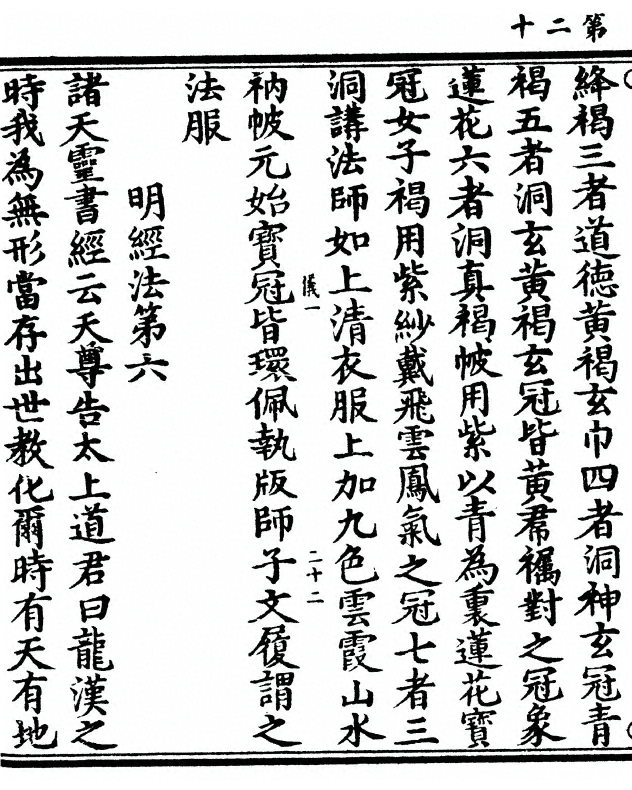 第二十
絳褐三者道德黃褐玄巾四者洞神玄冠青
褐五者洞玄黃褐玄冠皆黃帬襦對之冠象
蓮花六者洞真褐帔用紫以青為裏蓮花寶
冠女子褐用紫紗戴飛雲鳳氣之冠七者三
洞講法師如上清衣服上加九色雲霞山水
儀一
二十二
衲帔元始寶冠皆環佩執版師子文履謂之
法服
明經法第六
諸天靈書經云天尊告太上道君曰龍漢之
時我為無形當存出世教化爾時有天有地